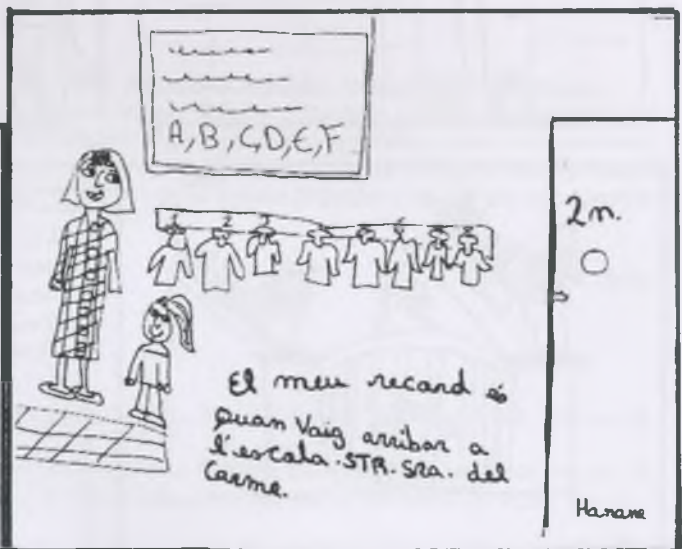 A, B, C, D, E, F
1 2 3
2n.
El meu record és
quan vaig arribar a
l'escala. STR. SRA. del
Carme.
Hanane